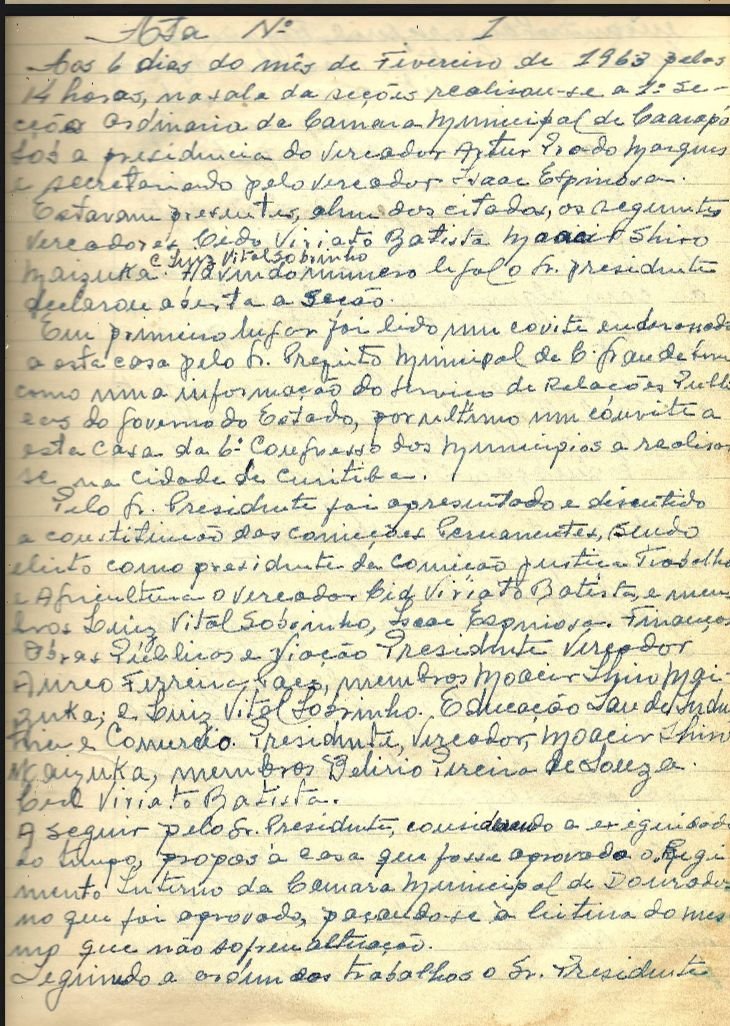 Ata Nº 1
Aos 6 dias do mês de Fevereiro de 1963 pelas
14 horas, na sala da seções realisou-se a 1ª se-
ção Ordinaria da Camara Municipal de Caarapó
sob a presidencia do vereador Artur Prado Marques
e secretariado pelo vereador Isaac Espinosa.
Estavam presentes, alem dos citados, os seguintes
vereadores, Cido Viriato Batista Moacir Shiro
e Luiz Vital Sobrinho
Maizuka. Havendo numero legal o Sr. presidente
declarou aberta a seção.
Em primeiro lugar foi lido um covite endorossado
a esta casa pelo Sr. Prefeito Municipal de C. Grande bem
como uma informação do Serviço de Relações Publi
cas do Governo do Estado, por ultimo um convite a
esta casa da 6º Congresso dos Municipios a realisar
se na cidade de Curitiba.
Pelo Sr. Presidente foi apresentado e discutido
a constituicão das comições Permanentes, sendo
eleito como presidente da comicão justica Trabalho
e Agricultura o vereador Cid Viriato Batista, e mem
bros Luiz Vital Sobrinho, Isaac Espinosa. Finanças
Obras Públicas e Viação Presidente Vereador
Aureo Ferreira Paes, membros Moacir Shiro Mai-
zuka, e Luiz Vital Sobrinho. Educação Saude Indu
tria e Comercio. Presidente, Vereador, Moacir Shiro
Maizuka, membros Belirio Pereira de Souza.
Cid Viriato Batista.
A seguir pelo Sr. Presidente, considerando a exiguidade
do tempo, propos à casa que fosse aprovado o Regi
mento Interno da Camara Municipal de Dourados
no que foi aprovado, paçando-se à leitina do mes
mo que não sofreu altração.
Seguindo a ordem dos trabalhos o Sr. Presidente